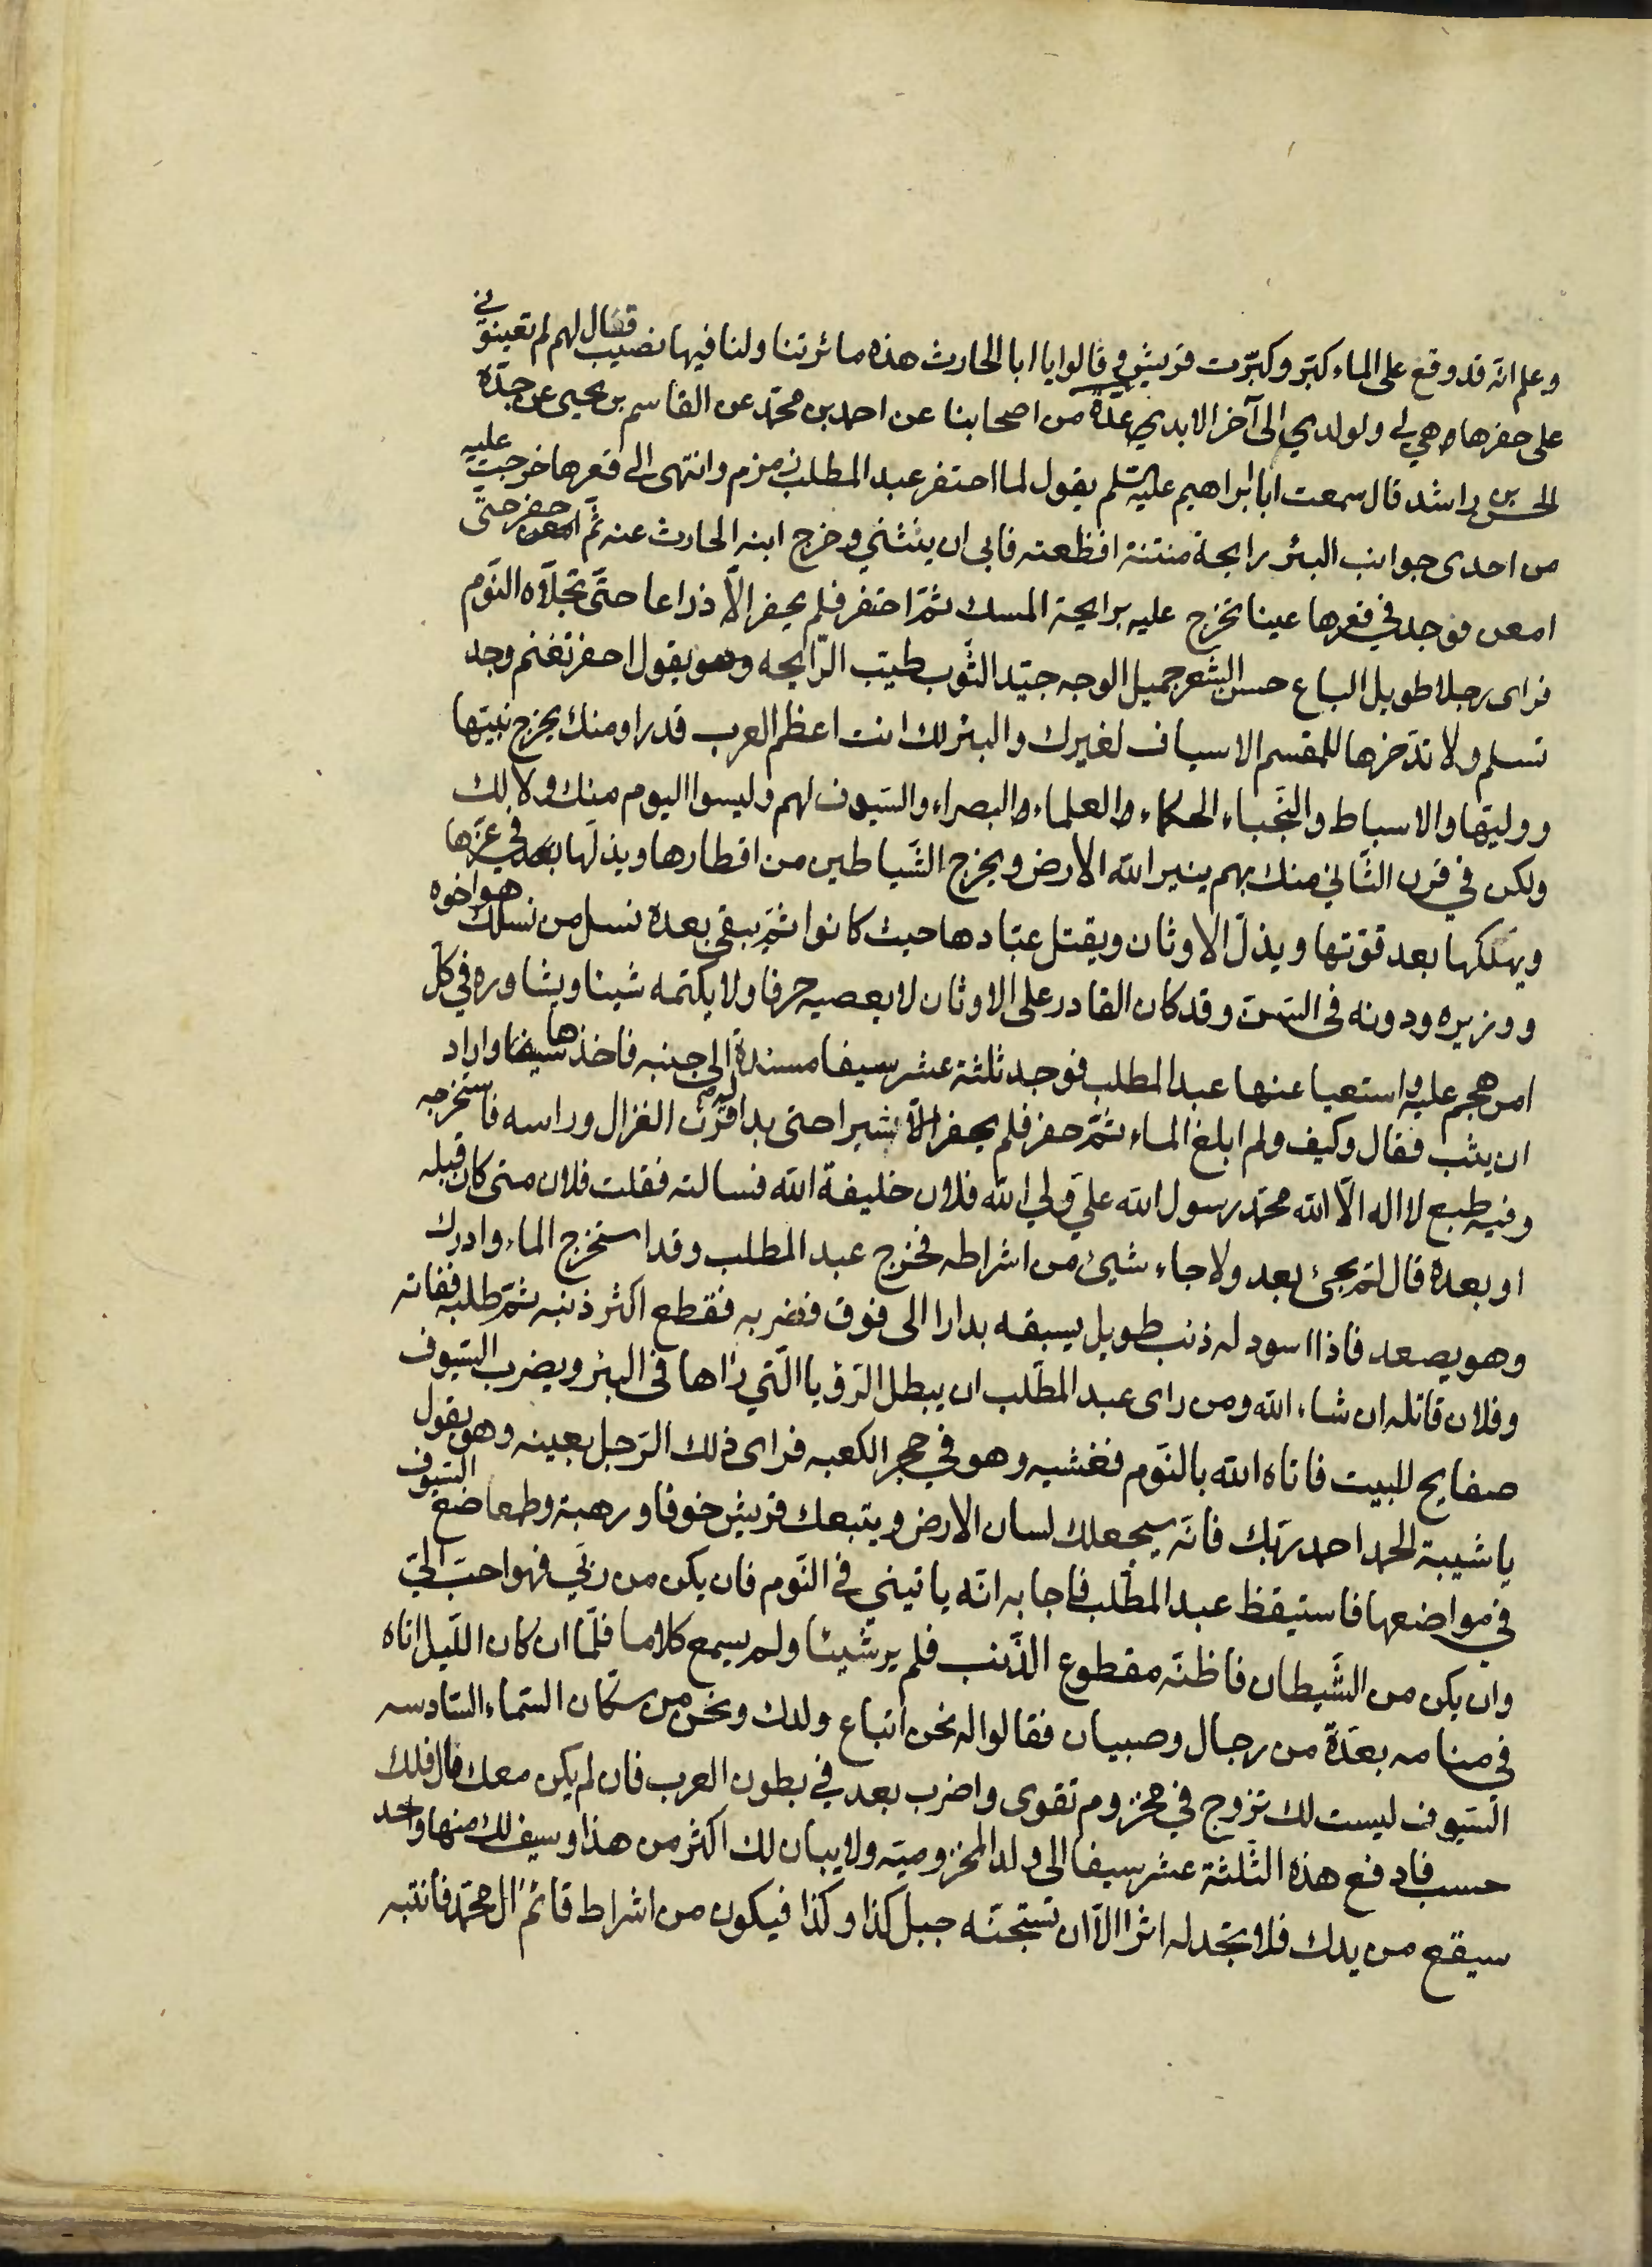 وعلم انّه قد وقع على الماء كبّر وكبّرت قريش و قالوا يا ابا الحارث هذه ماثرتنا ولنا فيها نصيب فقال لهم لم تعينوني
على حفرها هي لي ولولدي الى آخر الابدي عدّة من اصحابنا عن احمد بن محمّد عن القاسم بن يحيى عن جدّه
الحسن بن راشد قال سمعت ابا ابراهيم عليه السّلم يقول لما احتفر عبد المطلب زمزم وانتهى الى قعرها خرجت عليه
من احدى جوانب البئر رايحة منتنة افظعته فابى ان ينثني وخرج ابنه الحارث عنه ثمّ حفر حتّى
امعن فوجد في قعرها عينا تخرج عليه برايحة المسك ثمّ احتفر فلم يحفر الّا ذراعا حتّى تجلّاه النّوم
فراى رجلا طويل الباع حسن الشّعر جميل الوجه جيّد الثّوب طيّب الرّايحه وهو يقول احفر تغنم وجد
تسلم ولا تدّخرها للمقسم الاسياف لغيرك والبئر لك انت اعظم العرب قدرا ومنك يخرج نبيّها
ووليّها والاسباط والنّجباء الحكماء والعلماء والبصراء والسّيوف لهم وليسوا اليوم منك ولا لك
ولكن في قرن الثّاني منك بهم ينير اللّه الارض ويخرج الشّياطين من اقطارها ويذلّها بعد في عزّها
ويهلكها بعد قوّتها ويذلّ الاوثان ويقتل عبّادها حيث كانوا ثمّ يبقى بعده نسل من نسلك هو اخوه
ووزيره ودونه فى السّن وقد كان القادر على الاوثان لا يعصيه حرفا ولا يكتمه شيئا ويشاوره في كلّ
امر هجم عليه واستعيا عنها عبد المطلب فوجد ثلثة عشر سيفا مسندة الى جنبه فاخذها سيفا واراد
ان يثب فقال وكيف ولم ابلغ الماء ثمّ حفر فلم يحفر الّا شبرا حتى بدا له قرن الغزال وراسه فاستخرجه
وفيه طبع لا اله الّا اللّه محمّد رسول اللّه عليّ وليّ اللّه فلان خليفة اللّه فسالته فقلت فلان متى كان قبله
او بعده قال لم يجئ بعد ولا جاء شيئ من اشراطه فخرج عبد المطلب وقد استخرج الماء وادرك
وهو يصعد فاذا اسود له ذنب طويل يسبقه بدارا الى فوق فضربه فقطع اكثر ذنبه ثمّ طلبه ففاته
وفلان قاتله ان شاء اللّه ومن راى عبد المطّلب ان يبطل الرّؤيا الّتي رٰاها فى البئر ويضرب السّيوف
صفايح للبيت فاتاه اللّه بالنّوم فغشيه وهو في حجر الكعبه فراى ذلك الرّجل بعينه وهو يقول
يا شيبة الحمد احمد ربّك فانّه سيجعلك لسان الارض ويتبعك قريش خوفا ورهبة وطمعا ضع السّيوف
في مواضعها فاستيقظ عبد المطّلب فاجابه انّه ياتيني في النّوم فان يكن من ربّي فهو احبّ اليّ
وان يكن من الشّيطان فاظنّه مقطوع الذّنب فلم ير شيئا ولم يسمع كلاما فلمّا ان كان اللّيل اتاه
في منامه بعدّة من رجال وصبيان فقالوا له نحن اتباع ولدك ونحن من سكّان السّماء السّادسه
السّيوف ليست لك تزوج في مخزوم تقوى واضرب بعد في بطون العرب فان لم يكن معك مال فلك
حسب فادفع هذه الثّلثة عشر سيفا الى ولد المخزوميّه ولا يبان لك اكثر من هذا وسيف لك منها واحد
سيقع من يدك فلا تجد له اثرا الّا ان تستجنّه جبل كذا وكذا فيكون من اشراط قائم ال محمّد فانتبه